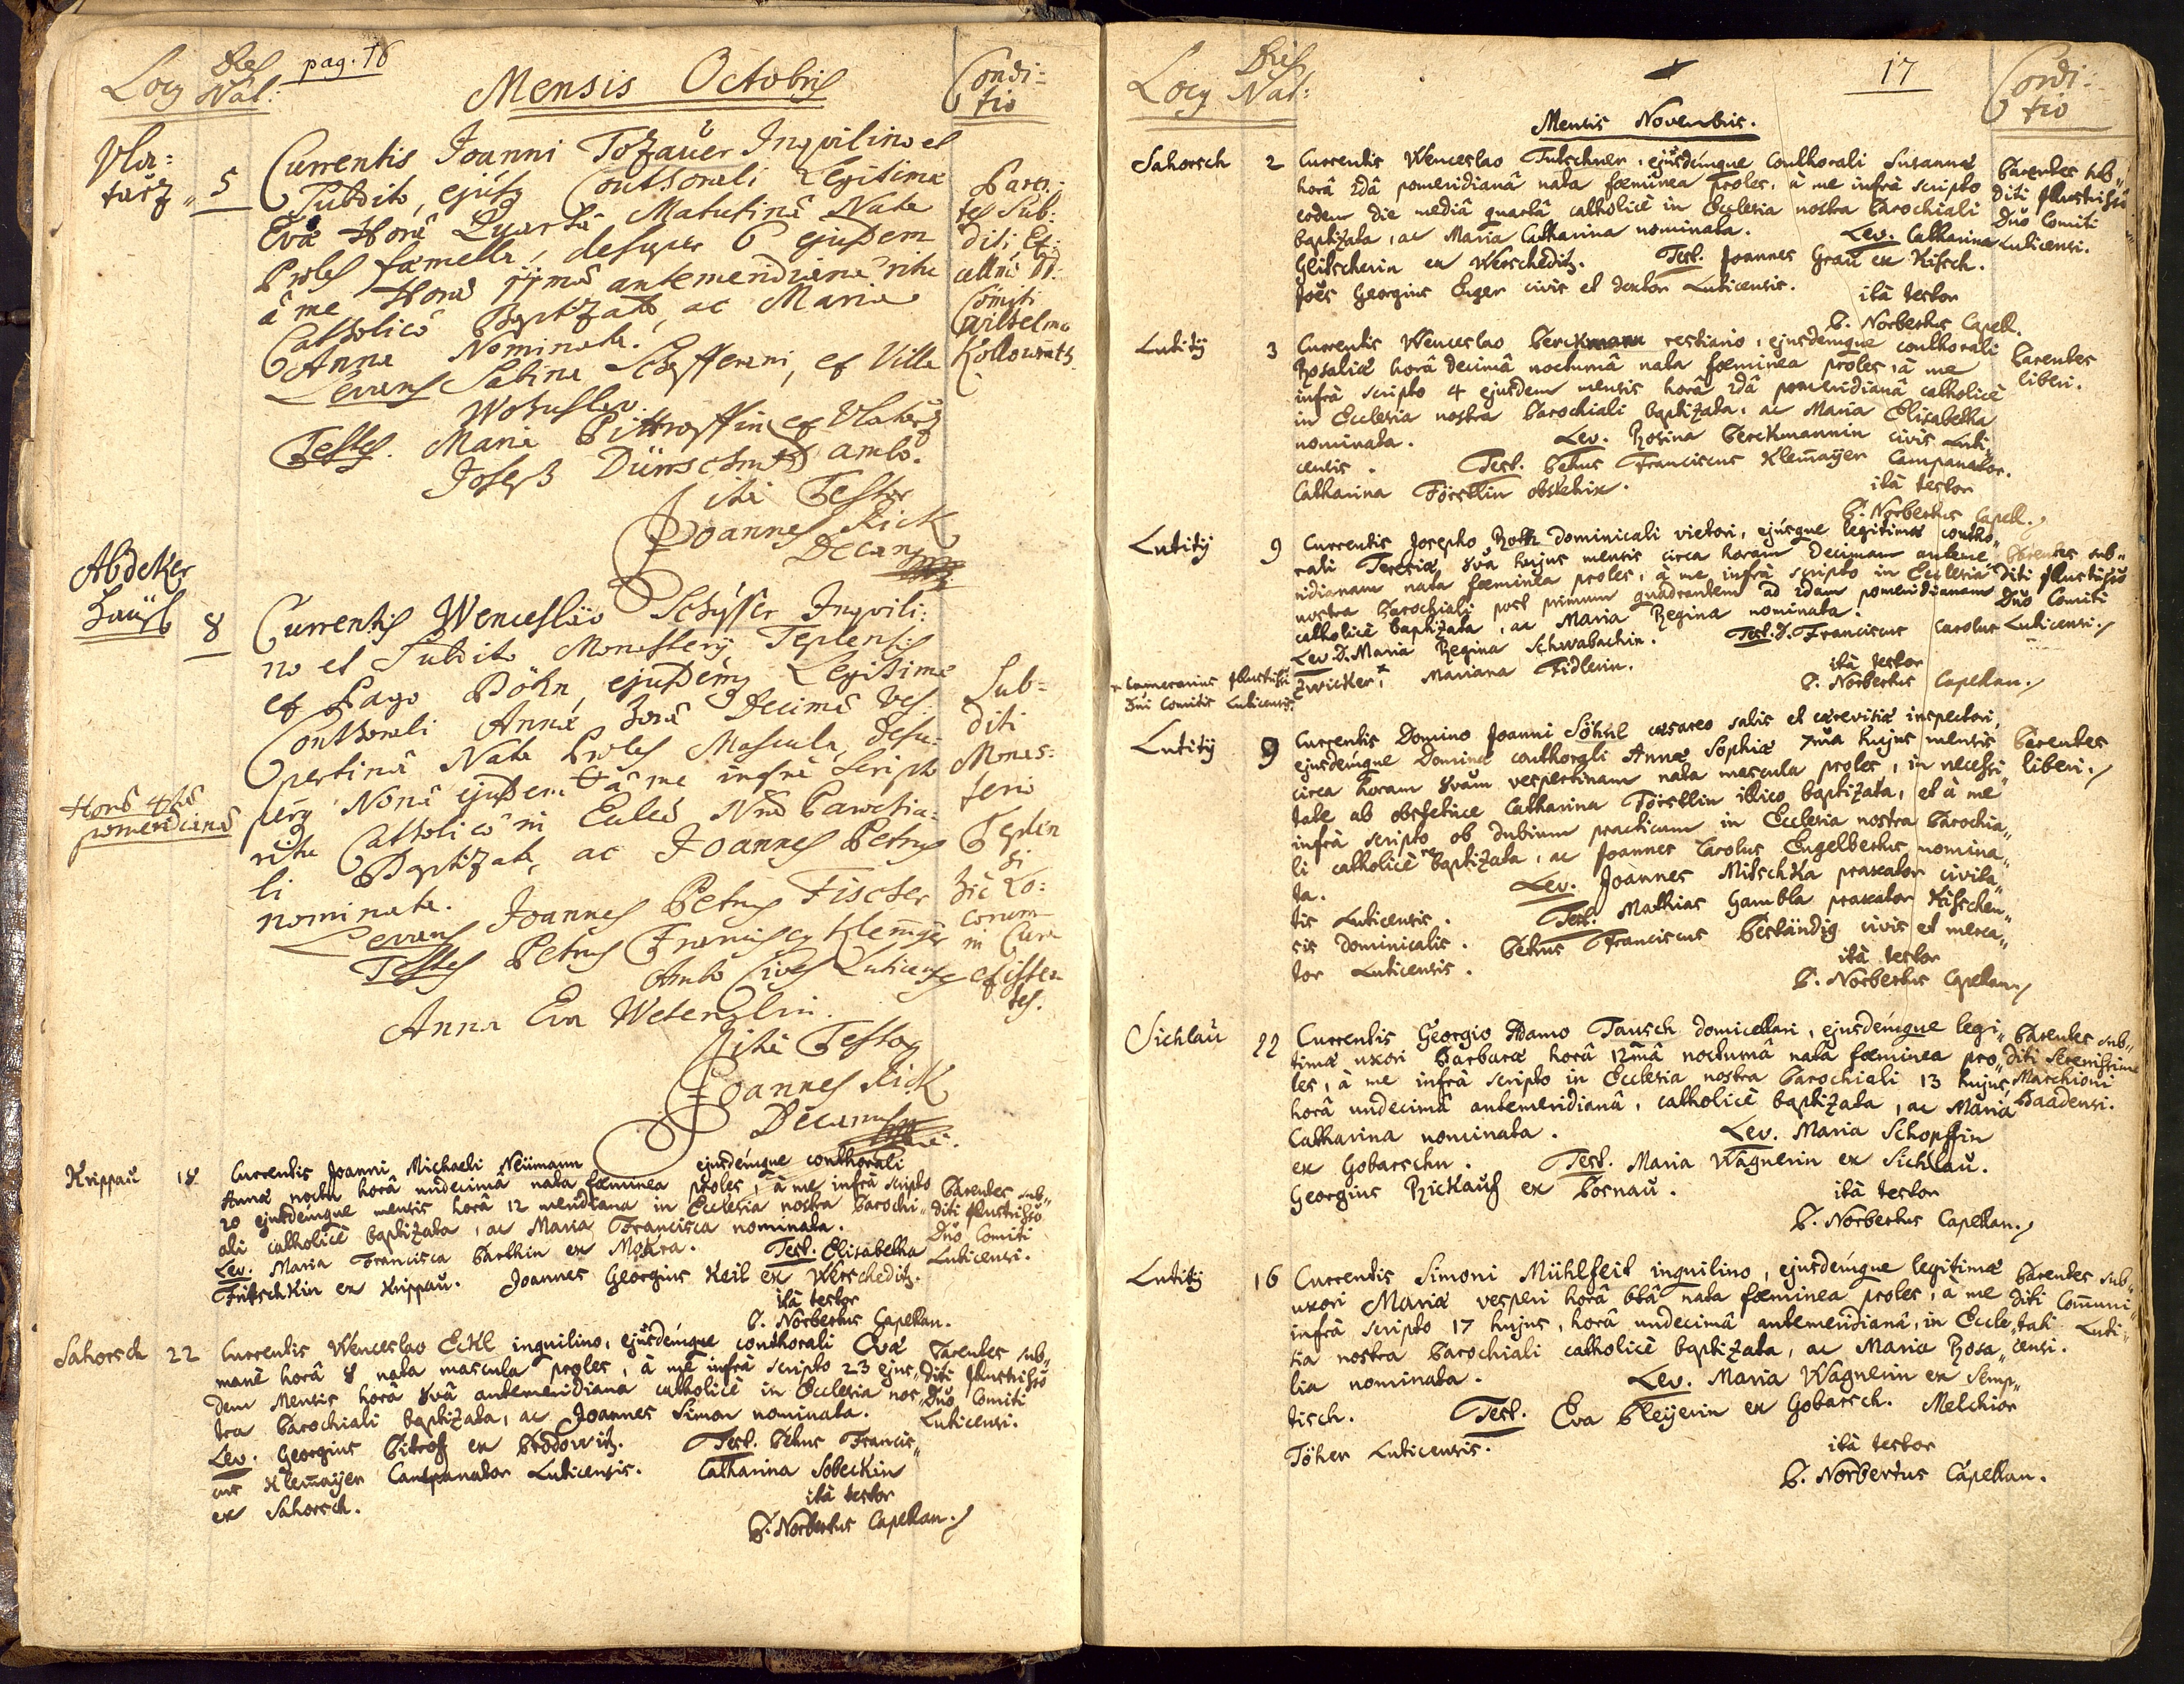 Locus Dies Nat: pag. 16
Mensis Octobris
Condi=
tio
Vla=
tarz
5
Currentis Joanni Tozauer Inquilino et
Subdito, ejusq Conthorali Legitima
Eva Horâ Quartâ Matutinâ Nata
Proles fæmella, desuper 6 ejusdem
â me Horâ antemeridianâ ritu
Catholicô Baptizata, ac Maria
Anna Nominata.
Levans Sabina Schefferani, ex Villa
Testes. Maria ex Vlatarz
Joseph Dürrschmid ambo.
ita Testor
Joannes Rick
Decanus
Paren:
tes Sub:
diti Ex:
cellmo D:
Comiti
Wilhelmo
Kollowrath
Abdeker
Haüsl
8
Currentis Wenceslao Schysser Inquili:
no et Subdito Monasterij Teplensis
ex Pago Böhn, ejusdemq Legitima
Conthorali Anna horâ Decimâ Ves:
pertinâ Nata Proles Mascula, desu:
perq Nonâ ejusdem â me infrà Scripto
ritu Catholicô in Eccleâ Nrâ Parochia:
li Baptizata, ac Joannes Petrus
nominata.
Levans Joannes Petrus Fischer
Testes Petrus Franciscus Klemayer
Ambo Cives Luticenses
Anna Eva Wetenzlin.
ita Testor
Joannes Rick
Decanus
Horâ 4tâ
pomeridianâ
Sub=
diti
Monas:
terio
Teplen
si
hic Lo:
corum
in Cura
existen
tes.
Krippau
18
Currentis Joanni Michaeli Neümann ejusdémque conthorali
Anna noctu horâ undecimâ nata fœminea proles, à me infrà scripto
20 ejusdémque mensis horâ 12 meridiana in Ecclesia nostra Parochi„
ali catholicè baptizata, ac Maria Francisca nominata.
Lev. Maria Francisca Barthin ex Mokra. Test. Elisabetha
Fritschkin ex Krippau. Joannes Georgius Keil ex Werscheditz.
ità testor
P. Norbertus Capellan.
Parentes sub„
diti Illustrissimo
Dño Comiti
Luticensi.
Sahorsch
22
Currentis Wenceslao Eckl inquilino, ejusdémque conthorali Eva
manè horâ 8 nata mascula proles, à me infrà scripto 23 ejus„
dem Mensis horâ 8vâ antemeridiana catholicè in Ecclesia nos„
tra Parochiali baptizata, ac Joannes Simon nominata.
Lev. Georgius Pitroff ex Prodowitz. Test. Petrus Francis„
cus Klemaÿer Campanator Luticensis. Catharina Sobeckin
ex Sahorsch.
ità testor
P. Norbertus Capellan.
Parentes sub„
diti Illustrissimo
Dño Comiti
Luticensi.
Locus Dies Nat:
17
Condi:
tio
Mensis Novembris.
Sahorsch
2
Currentis Wenceslao Tutschner, ejusdémque conthorali Susanna
horâ 2dâ pomeridianâ nata fœminea proles, à me infrà scripto
eodem die mediâ quartâ catholicè in Ecclesia nostra Parochiali
baptizata, ac Maria Catharina nominata. Lev. Catharina
Glitscherin ex Werscheditz. Test. Joannes Grau ex Kitsch.
Joës Georgius Eiger civis et Luticensis.
ità testor
P. Norbertus Capell.
Parentes sub„
diti Illustrissimo
Dño Comiti
Luticensi.
Lutitÿ
3
Currentis Wenceslao Berckmann restiario, ejusdémque conthorali
Rosalia horâ decimâ nocturnâ nata fœminea proles, à me
infrà scripto 4 ejusdem mensis horâ 2dâ pomeridianâ catholicè
in Ecclesia nostra Parochiali baptizata, ac Maria Elisabetha
nominata. Lev. Rosina Berckmannin civis Luti„
censis. Test. Petrus Franciscus Klemaÿer Campanator.
Catharina Förstlin obstetrix.
ità testor
P. Norbertus Capell.
Parentes
liberi.
Lutitÿ
9
Currentis Josepho Roth dominicali vietori, ejúsque legitima contho„
rali Teresia, 8vâ hujus mensis circa horam Decimam anteme„
ridianam nata fœminea proles, à me infrà scripto in Ecclesia
nostra Parochiali post primum quadrantem ad 2dam pomeridianam
catholicè baptizata, ac Maria Regina nominata.
Lev. D. Maria Regina Schwabachin. Test. D. Franciscus Carolus
Zwicker, × Mariana Fidlerin.
ità testor
P. Norbertus Capellan.
× Camerarius Illustrissi
Dñi Comitis Luticensis.
Parentes sub„
diti Illustrissimo
Dño Comiti
Luticensi.
Lutitÿ
9
Currentis Domino Joanni Söhnl cæsareo salis et cerevisiæ inspectori,
ejusdémque Domina conthorali Anna Sophia 7ma hujus mensis
circa horam 8vam vespertinam nata mascula proles, in necessi„
tate ab obstetrice Catharina Förstlin illico baptizata, et à me
infrà scripto ob dubium practicum in Ecclesia nostra Parochia„
li catholicè rebaptizata, ac Joannes Carolus Engelbertus nomina„
ta. Lev. Joannes Mitschka praxator civita„
tis Luticensis. Test. Mathias Gambla praxator Kitschen„
sis dominicalis. Petrus Franciscus Beständig civis et merca„
tor Luticensis.
ità testor
P. Norbertus Capellan.
Parentes
liberi.
Sichlau
22
Currentis Georgio Adamo Tausch domicellari, ejusdémque legi„
tima uxori Barbara horâ 12mâ nocturnâ nata fœminea pro„
les, à me infrà scripto in Ecclesia nostra Parochiali 13 hujus,
horâ undecimâ antemeridianâ, catholicè baptizata, ac Maria
Catharina nominata. Lev. Maria Schopffin
ex Gobarschn. Test. Maria Wagnerin ex Sichlau.
Georgius Rickauf ex Posnau.
ità testor
P. Norbertus Capellan.
Parentes sub„
diti Serenissimo
Marchioni
Baadensi.
Lutitÿ
16
Currentis Simoni Mühlfeit inquilino, ejusdémque legitima
uxori Maria vesperi horâ 6tâ nata fœminea proles, à me
infrà scripto 17 hujus, horâ undecimâ antemeridianâ, in Eccle„
sia nostra Parochiali catholicè baptizata, ac Maria Rosa„
lia nominata. Lev. Maria Wagnerin ex Semp„
tisch. Test. Eva Pleÿerin ex Gobarsch. Melchior
Töher Luticensis.
ità testor
P. Norbertus Capellan.
Parentes sub„
diti Com̃uni„
tati Luti„
censi.